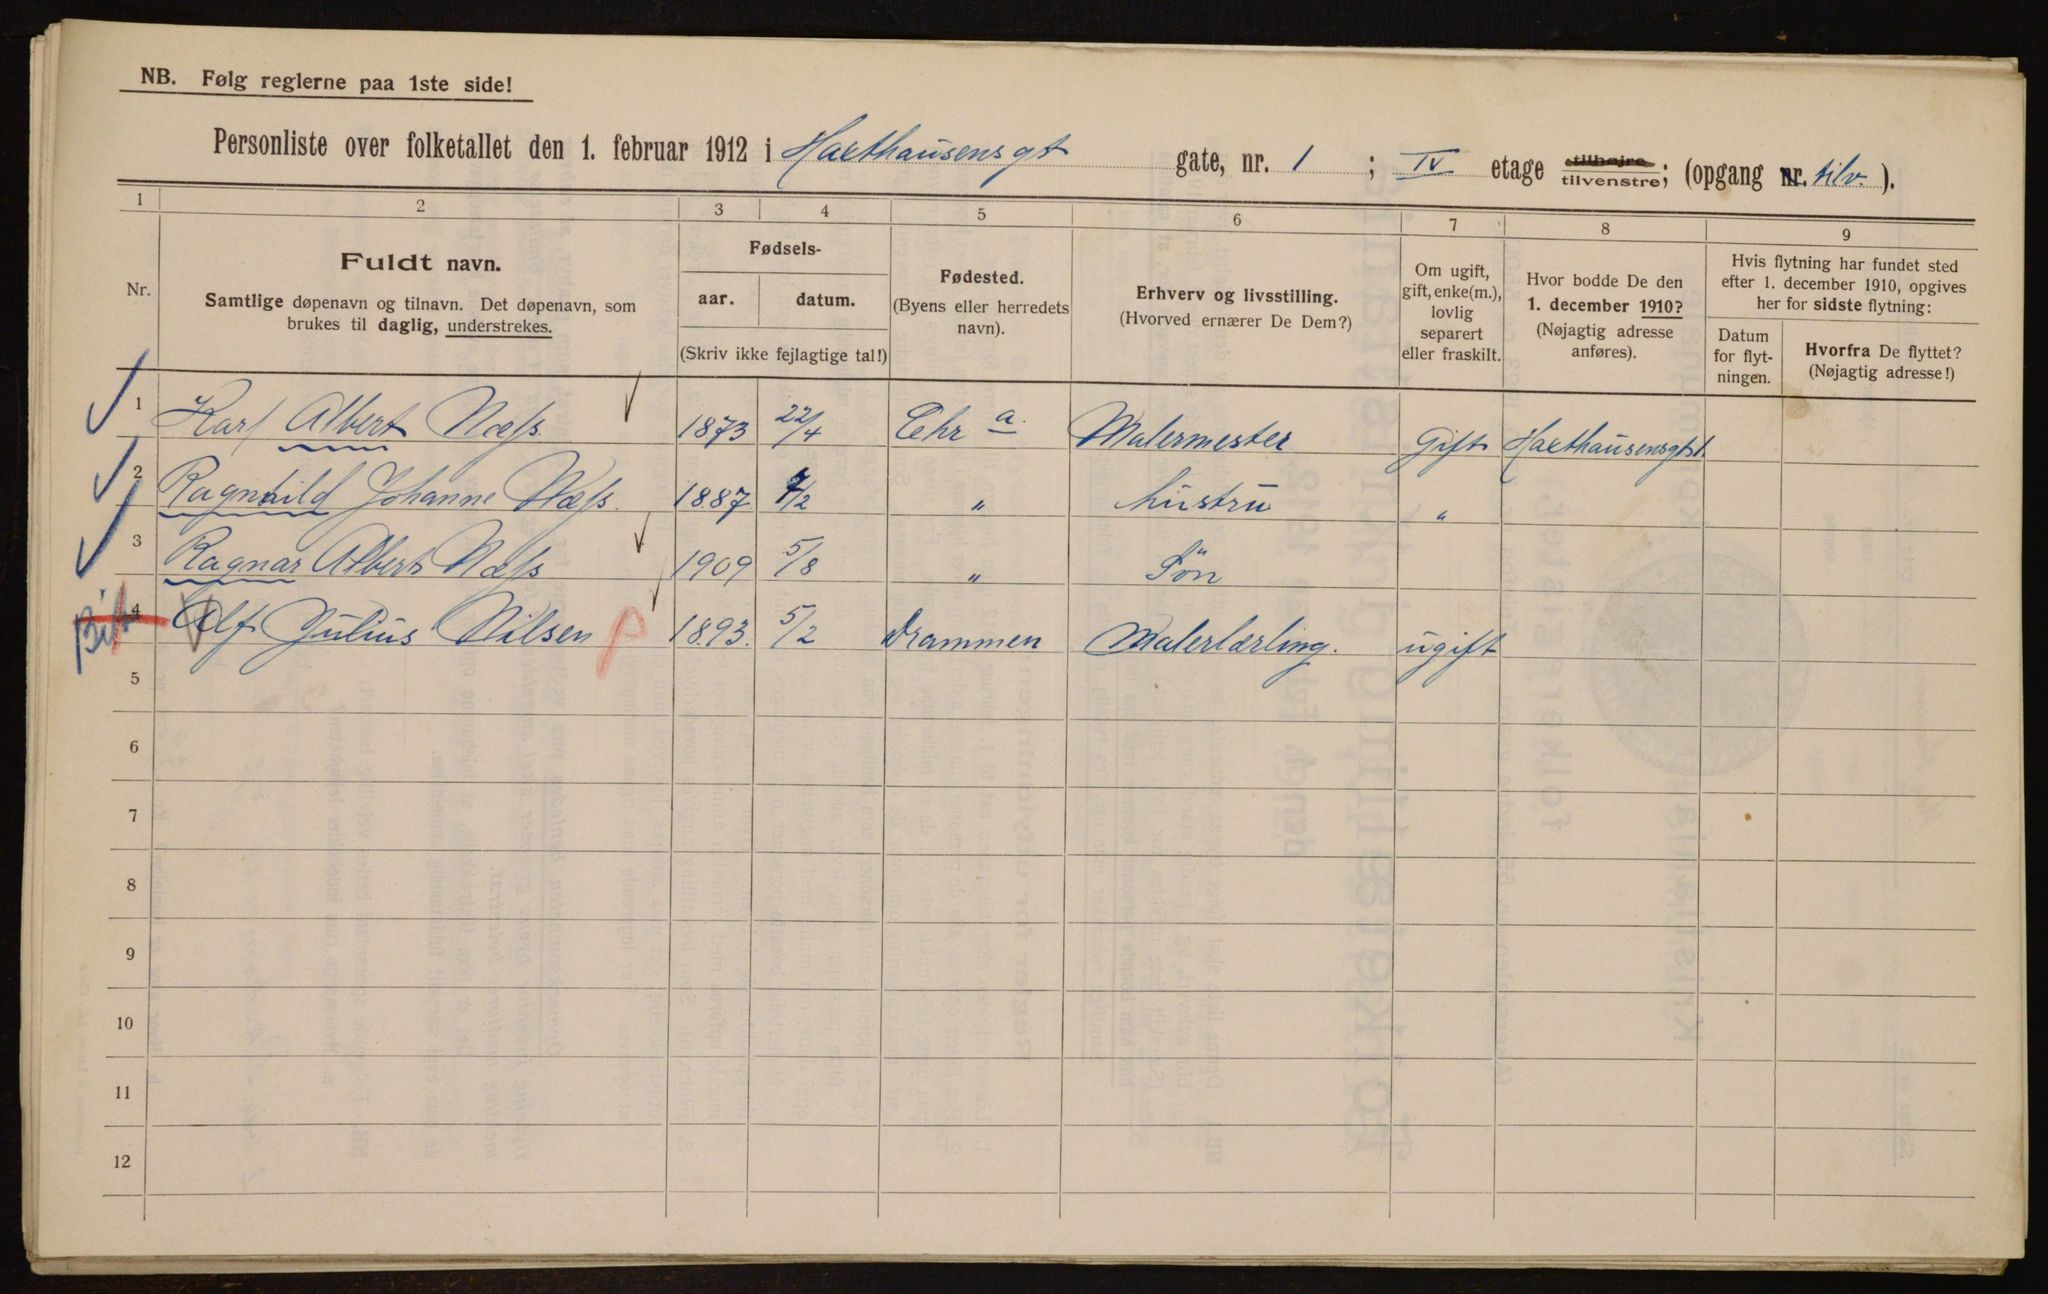 NB. Følg reglerne paa 1ste side!
Personliste over folketallet den 1. februar 1912 i Haxthausensgt gate, nr. 1 ; IV etage tilhøjre tilvenstre; (opgang nr. tilv. ).
1 2 3 4 5 6 7 8 9
Nr.
Fuldt navn.
Samtlige døpenavn og tilnavn. Det døpenavn, som
brukes til daglig, understrekes.
Fødsels-
aar. datum.
(Skriv ikke fejlagtige tal!)
Fødested.
(Byens eller herredets
navn).
Erhverv og livsstilling.
(Hvorved ernærer De Dem?)
Om ugift,
gift, enke(m.),
lovlig
separert
eller fraskilt.
Hvor bodde De den
1. december 1910?
(Nøjagtig adresse
anføres).
Hvis flytning har fundet sted
efter 1. december 1910, opgives
her for sidste flytning:
Datum
for flyt-
ningen.
Hvorfra De flyttet?
(Nøjagtig adresse!)
1 Karl Albert Næss 1873 22/4 Chr a. Malermester Gift Haxthausensgt 1.
2 Ragnhild Johanne Næss. 1887 /2 " hustru "
3 Ragnar Albert Næss 1909 5/8 " Søn
4 Alf Julius Nilsen 1893. 5/2 Drammen Malerlærling. ugift
5
6
7
8
9
10
11
12